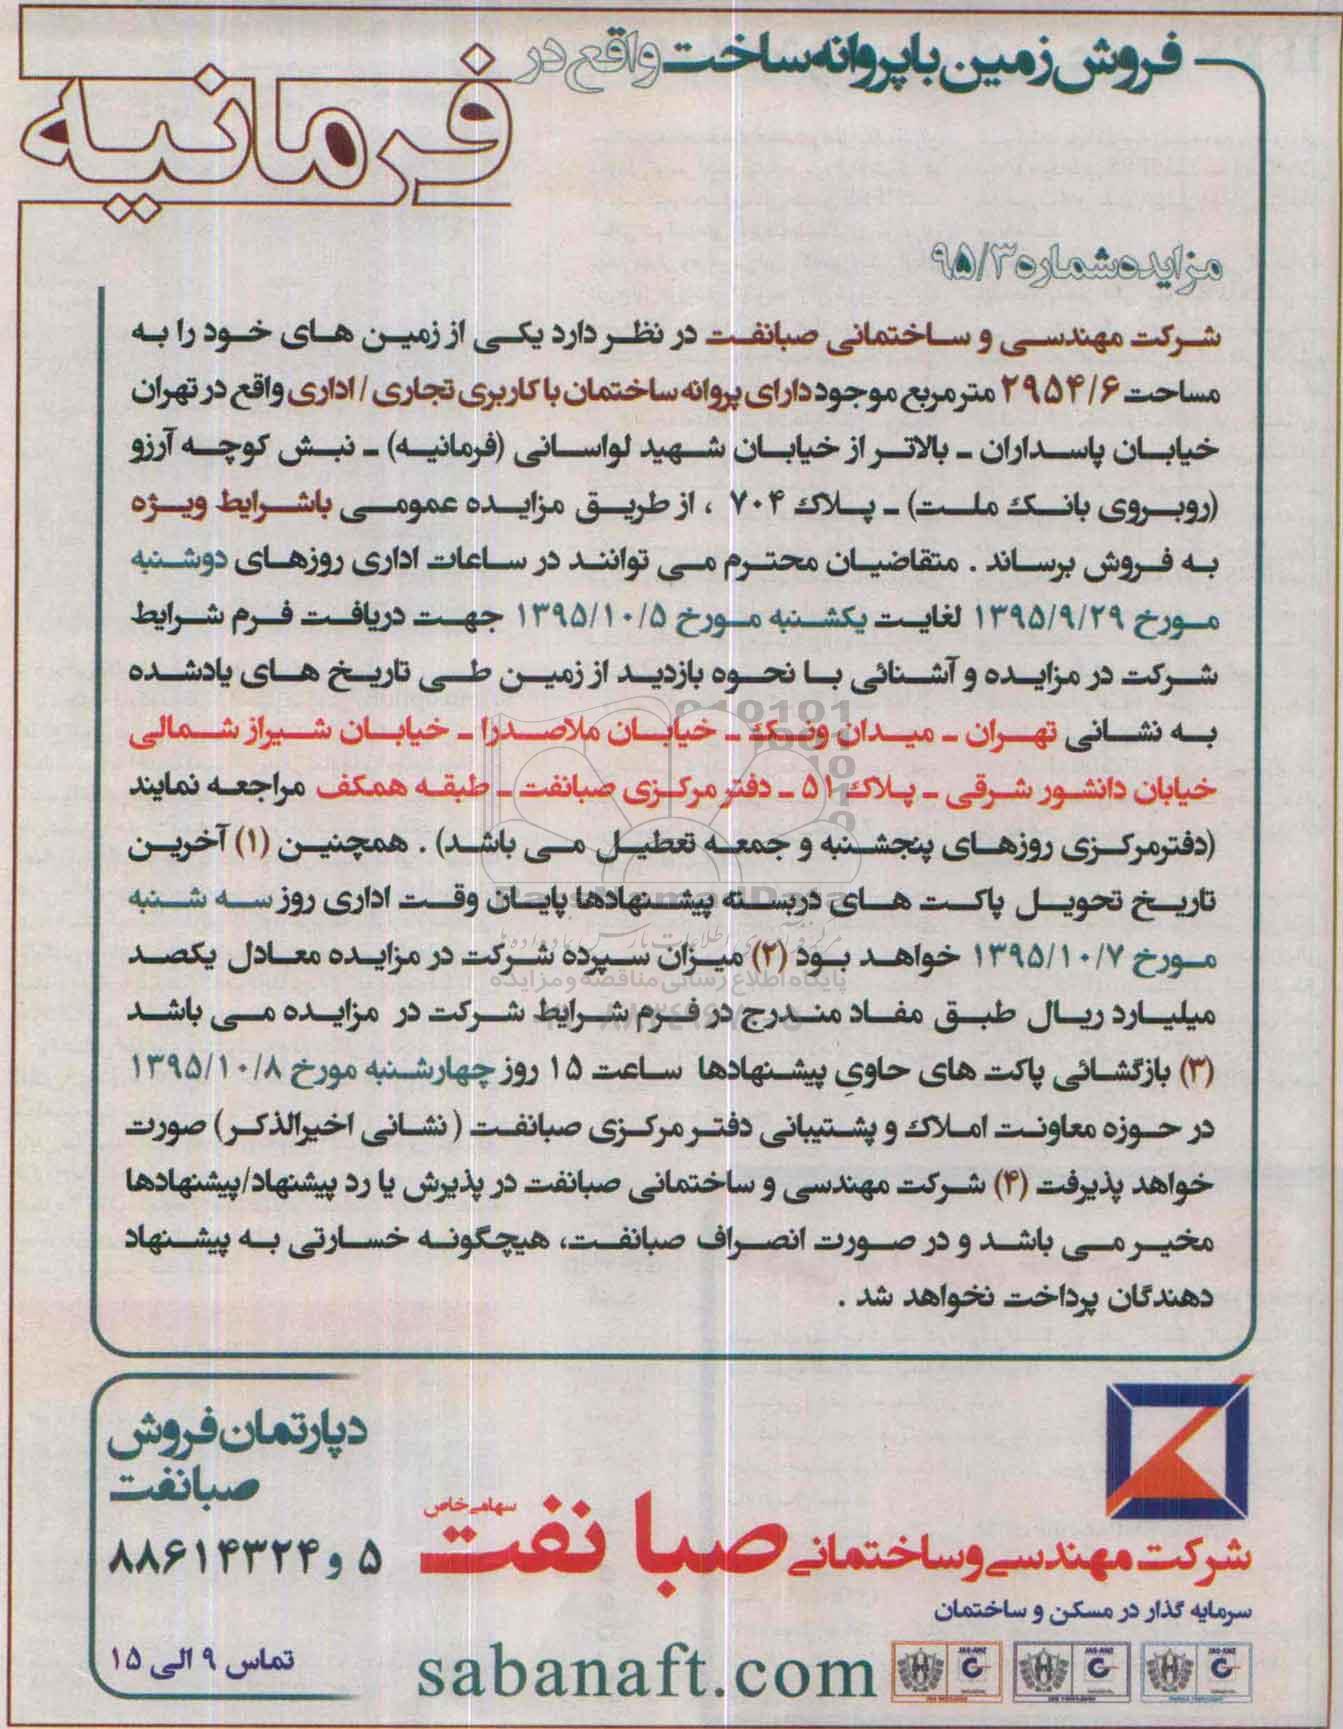 فروش زمین با پروانه ساخت واقع در
فرمانیه
مزایده شماره ۹۵/۳
شرکت مهندسی و ساختمانی صبانفت در نظر دارد یکی از زمین های خود را به
مساحت ۲۹۵۴/۶ مترمربع موجود دارای پروانه ساختمان با کاربری تجاری / اداری واقع در تهران
خیابان پاسداران ـ بالاتر از خیابان شهید لواسانی (فرمانیه) ـ نبش کوچه آرزو
(روبروی بانک ملت) ـ پلاک ۷۰۴ ، از طریق مزایده عمومی باشرایط ویژه
به فروش برساند . متقاضیان محترم می توانند در ساعات اداری روزهای دوشنبه
مورخ ۱۳۹۵/۹/۲۹ لغایت یکشنبه مورخ ۱۳۹۵/۱۰/۵ جهت دریافت فرم شرایط
شرکت در مزایده و آشنائی با نحوه بازدید از زمین طی تاریخ های یادشده
به نشانی تهران ـ میدان ونک ـ خیابان ملاصدرا ـ خیابان شیراز شمالی
خیابان دانشور شرقی ـ پلاک ۵۱ ـ دفتر مرکزی صبانفت ـ طبقه همکف مراجعه نمایند
(دفترمرکزی روزهای پنجشنبه و جمعه تعطیل می باشد) . همچنین (۱) آخرین
تاریخ تحویل پاکت های دربسته پیشنهادها پایان وقت اداری روز سه شنبه
مورخ ۱۳۹۵/۱۰/۷ خواهد بود (۲) میزان سپرده شرکت در مزایده معادل یکصد
میلیارد ریال طبق مفاد مندرج در فرم شرایط شرکت در مزایده می باشد
(۳) بازگشائی پاکت های حاویِ پیشنهادها ساعت ۱۵ روز چهارشنبه مورخ ۱۳۹۵/۱۰/۸
در حوزه معاونت املاک و پشتیبانی دفتر مرکزی صبانفت (نشانی اخیرالذکر) صورت
خواهد پذیرفت (۴) شرکت مهندسی و ساختمانی صبانفت در پذیرش یا رد پیشنهاد/پیشنهادها
مخیر می باشد و در صورت انصراف صبانفت، هیچگونه خسارتی به پیشنهاد
دهندگان پرداخت نخواهد شد .
پایگاه اطلاع رسانی مناقصه و مزایده
شرکت مهندسی وساختمانی صبا نفت سهامی خاص
سرمایه گذار در مسکن و ساختمان
sabanaft.com
دپارتمان فروش
صبانفت
۵ و ۸۸۶۱۴۳۲۴
تماس ۹ الی ۱۵